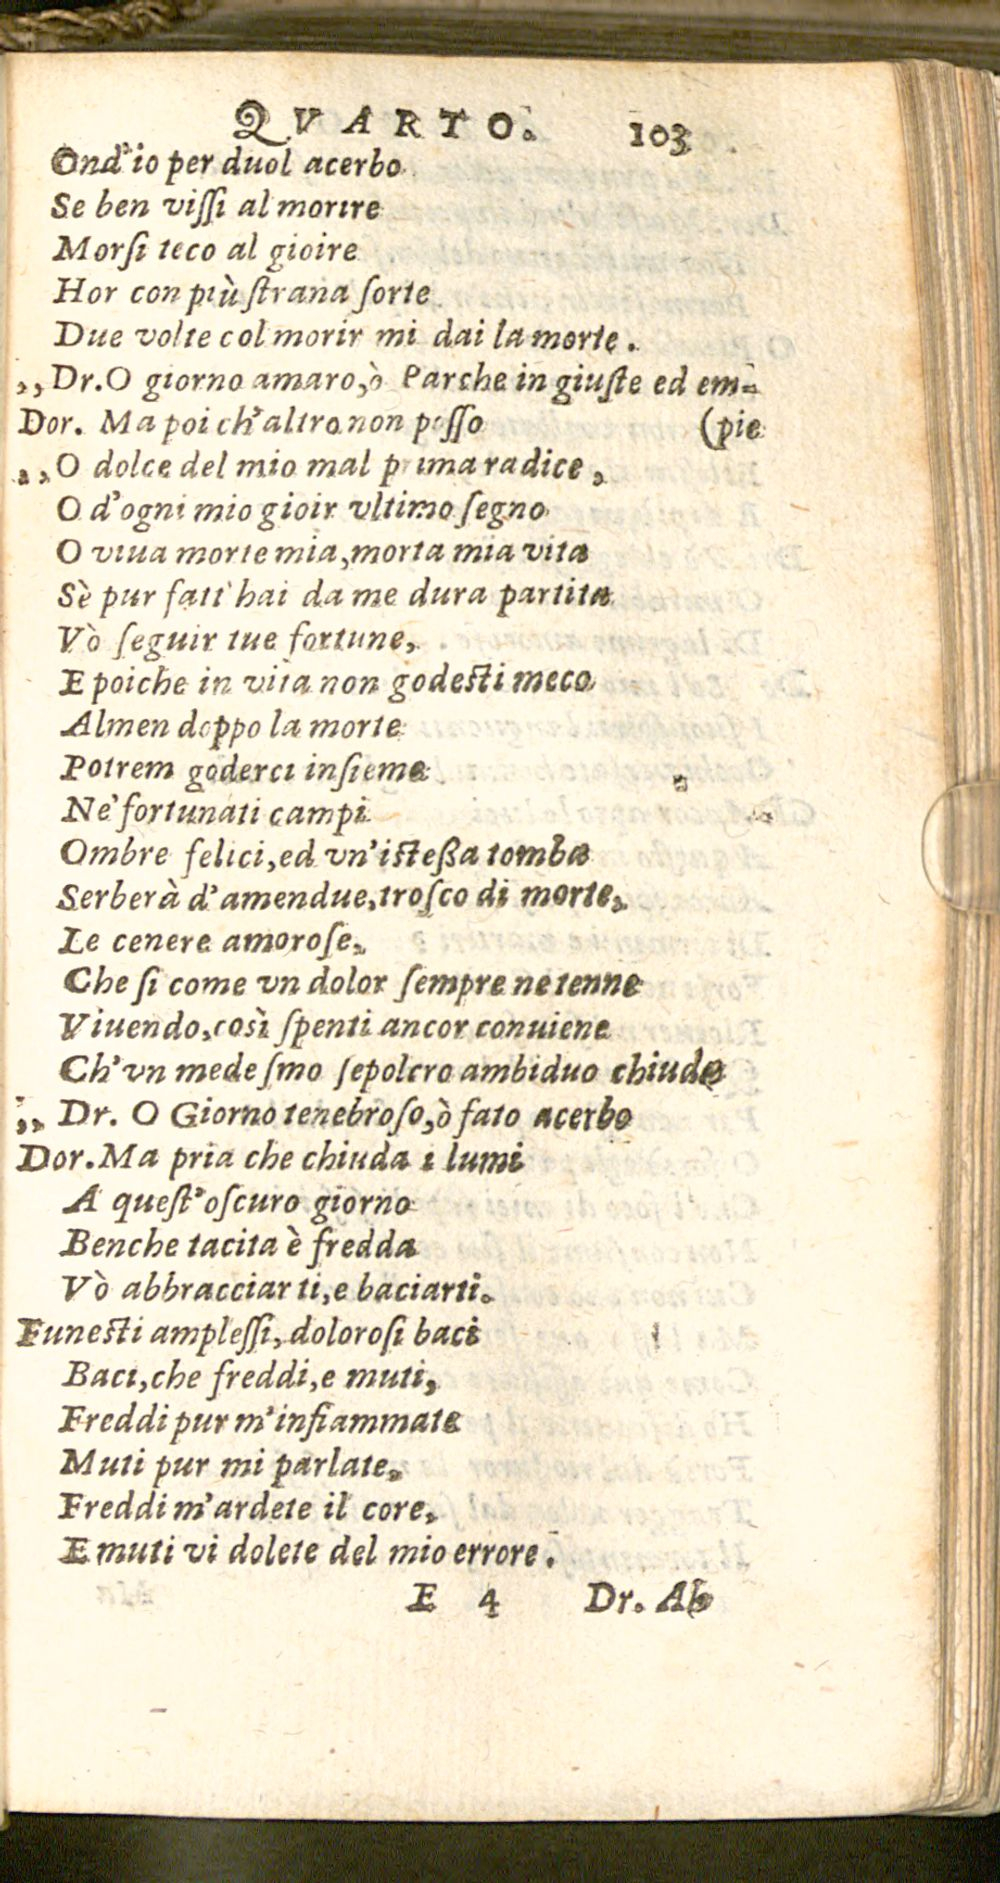 QVARTO. 103
Ond'io per duol acerbo
Se ben viſſi al morire
Morſi teco al gioire
Hor con più ſtrana ſorte
Due volte col morir mi dai la morte.
,,Dr.O giorno amaro,ò Parche ingiuſte ed em-
Dor. Ma poi ch'altro non poſſo (pie
,,O dolce del mio mal prima radice,
O d'ogni mio gioir vltimo ſegno
O viua morte mia,morta mia vita
Sè pur fatt'hai da me dura partita
Vò ſeguir tue fortune,
E poiche in vita non godeſti meco
Almen doppo la morte
Potrem goderci inſieme
Ne'fortunati campi
Ombre felici,ed vn'iſteßa tomba
Serberà d'amendue,troſco di morte,
Le cenere amoroſe,
Che ſi come vn dolor ſempre ne tenne
Viuendo,così ſpenti ancor conuiene
Ch'vn medeſmo ſepolcro ambiduo chiude
,, Dr. O Giorno tenebroſo,ò fato acerbo
Dor.Ma pria che chiuda i lumi
A queſt'oſcuro giorno
Benche tacita è fredda
Vò abbracciarti,e baciarti.
Funeſti ampleſſi,doloroſi baci
Baci,che freddi,e muti,
Freddi pur m'infiammate
Muti pur mi parlate,
Freddi m'ardete il core,
E muti vi dolete del mio errore.
E 4 Dr. Ah